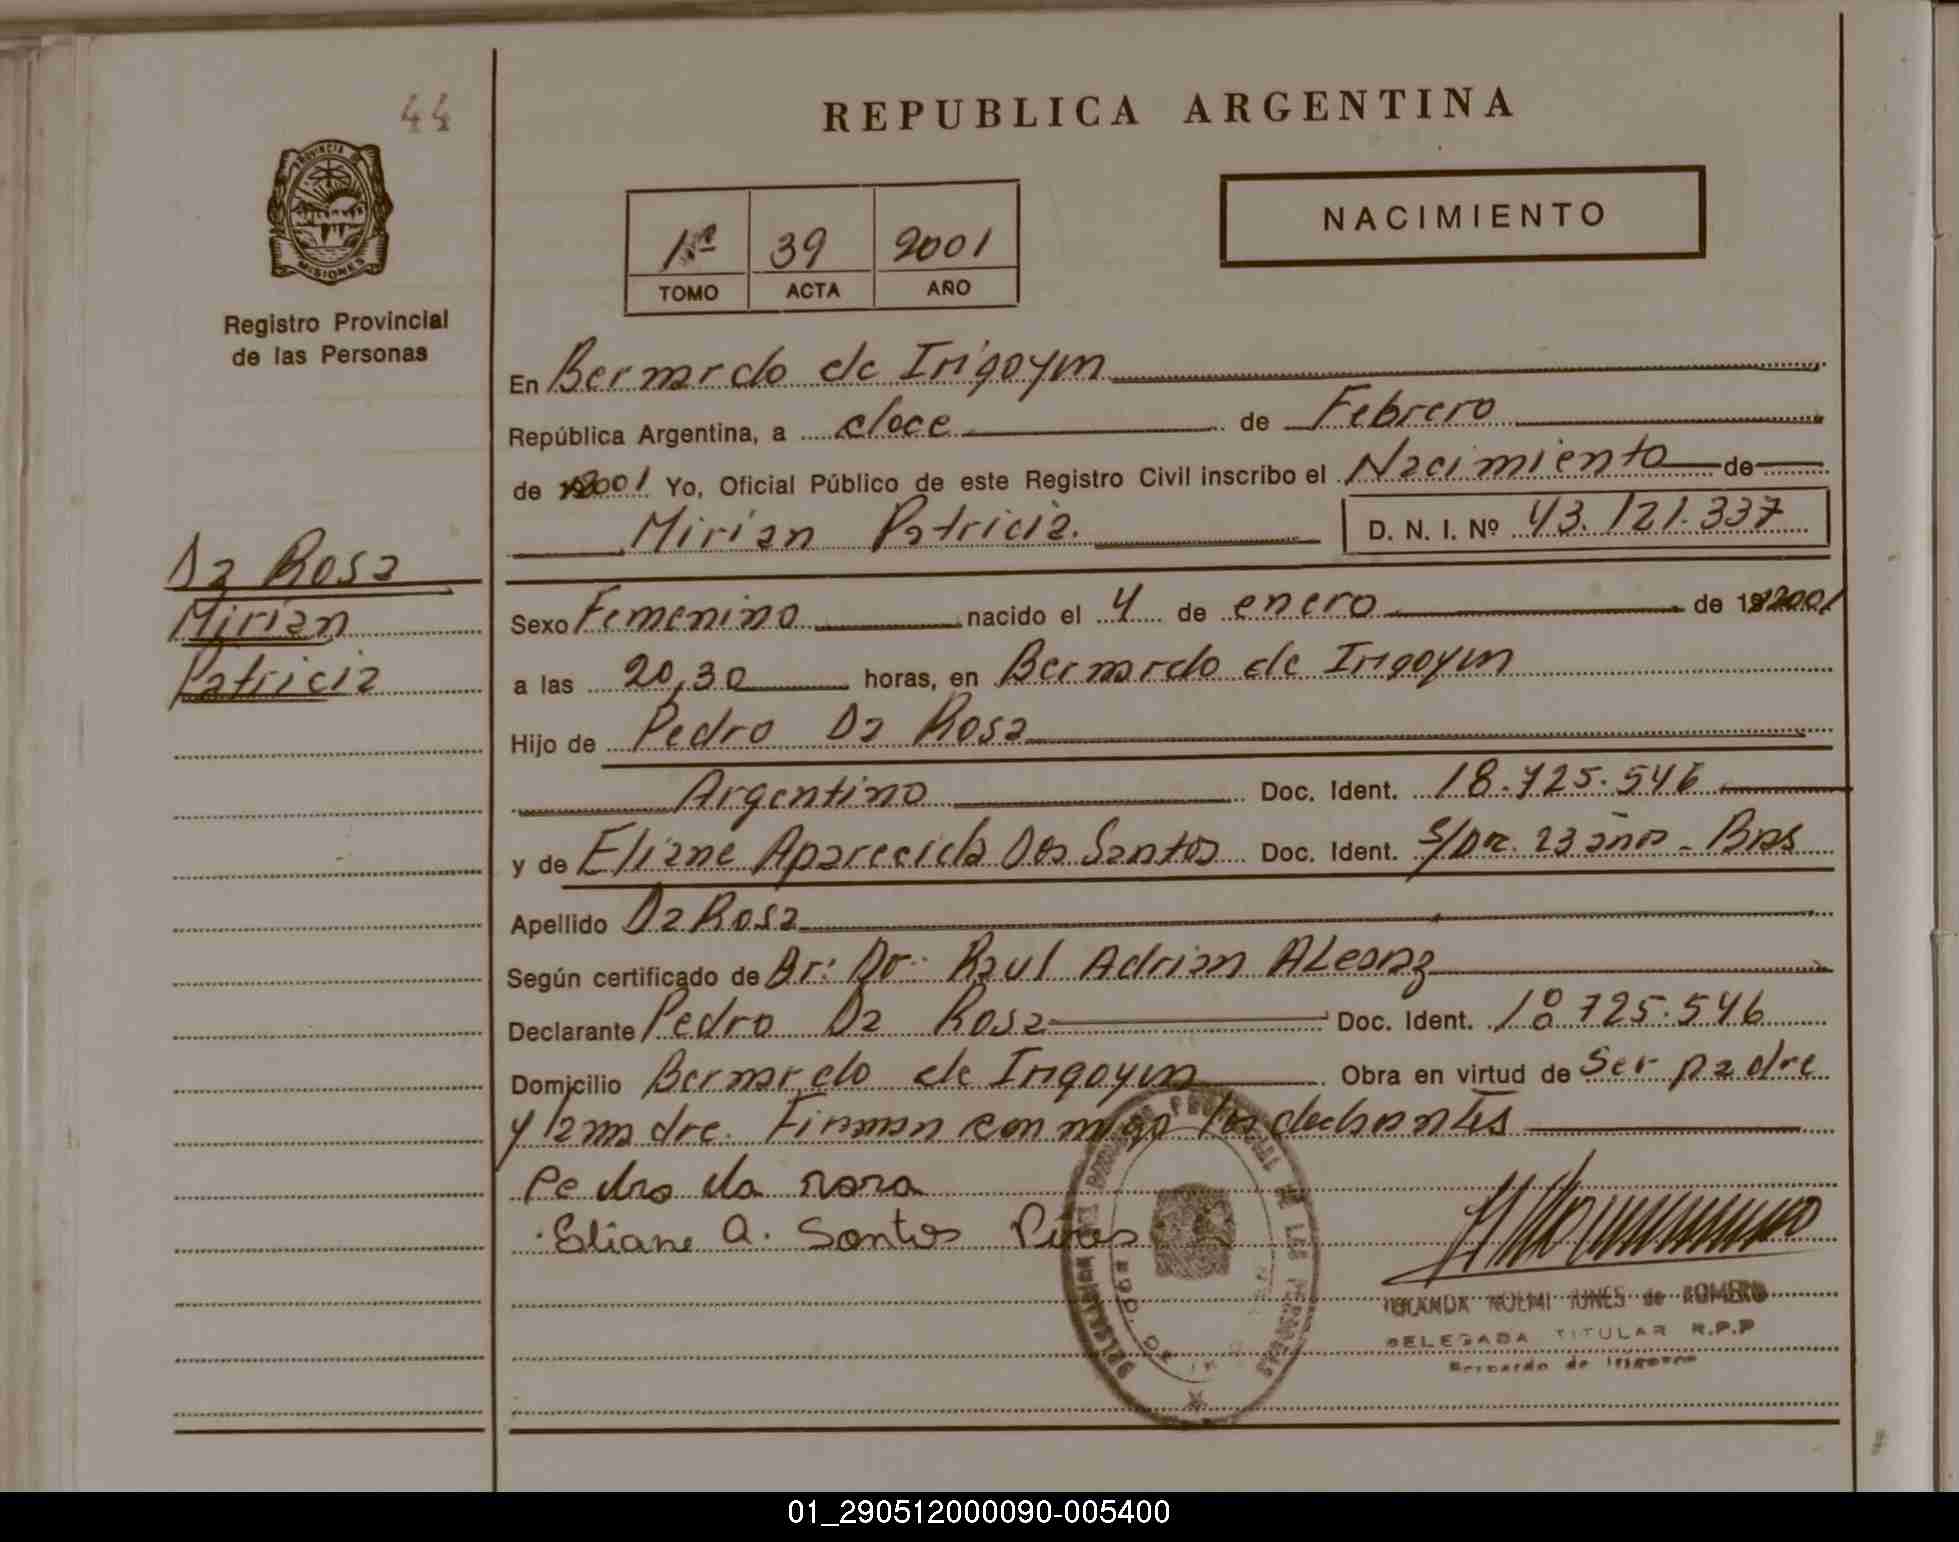 44
REPUBLICA ARGENTINA
PROVINCIA DE
MISIONES
Registro Provincial
de las Personas
NACIMIENTO
1º 39 2001
TOMO ACTA AÑO
En Bernardo de Irigoyen
República Argentina, a doce de Febrero
de 2001 Yo, Oficial Público de este Registro Civil inscribo el Nacimiento de
Mirian Patricia. D. N. I. Nº 43.121.337
Da Rosa
Mirian
Patricia
Sexo Femenino nacido el 4 de enero de 2001
a las 20,30 horas, en Bernardo de Irigoyen
Hijo de Pedro Da Rosa
Argentino Doc. Ident. 18.725.546
y de Eliane Aparecida Dos Santos Doc. Ident. S/Doc. 23 años - Bras
Apellido Da Rosa
Según certificado de Br: Dr. Raul Adrian ALeanz
Declarante Pedro Da Rosa Doc. Ident. 18.725.546
Domicilio Bernardo de Irigoyen Obra en virtud de Ser padre
y la madre. Firman conmigo los declarantes
Pedro da rosa
Eliane A. Santos Pires
YOLANDA NOEMI de ROMERO
DELEGADA TITULAR R.P.P
Bernardo de Irigoyen
01_290512000090-005400